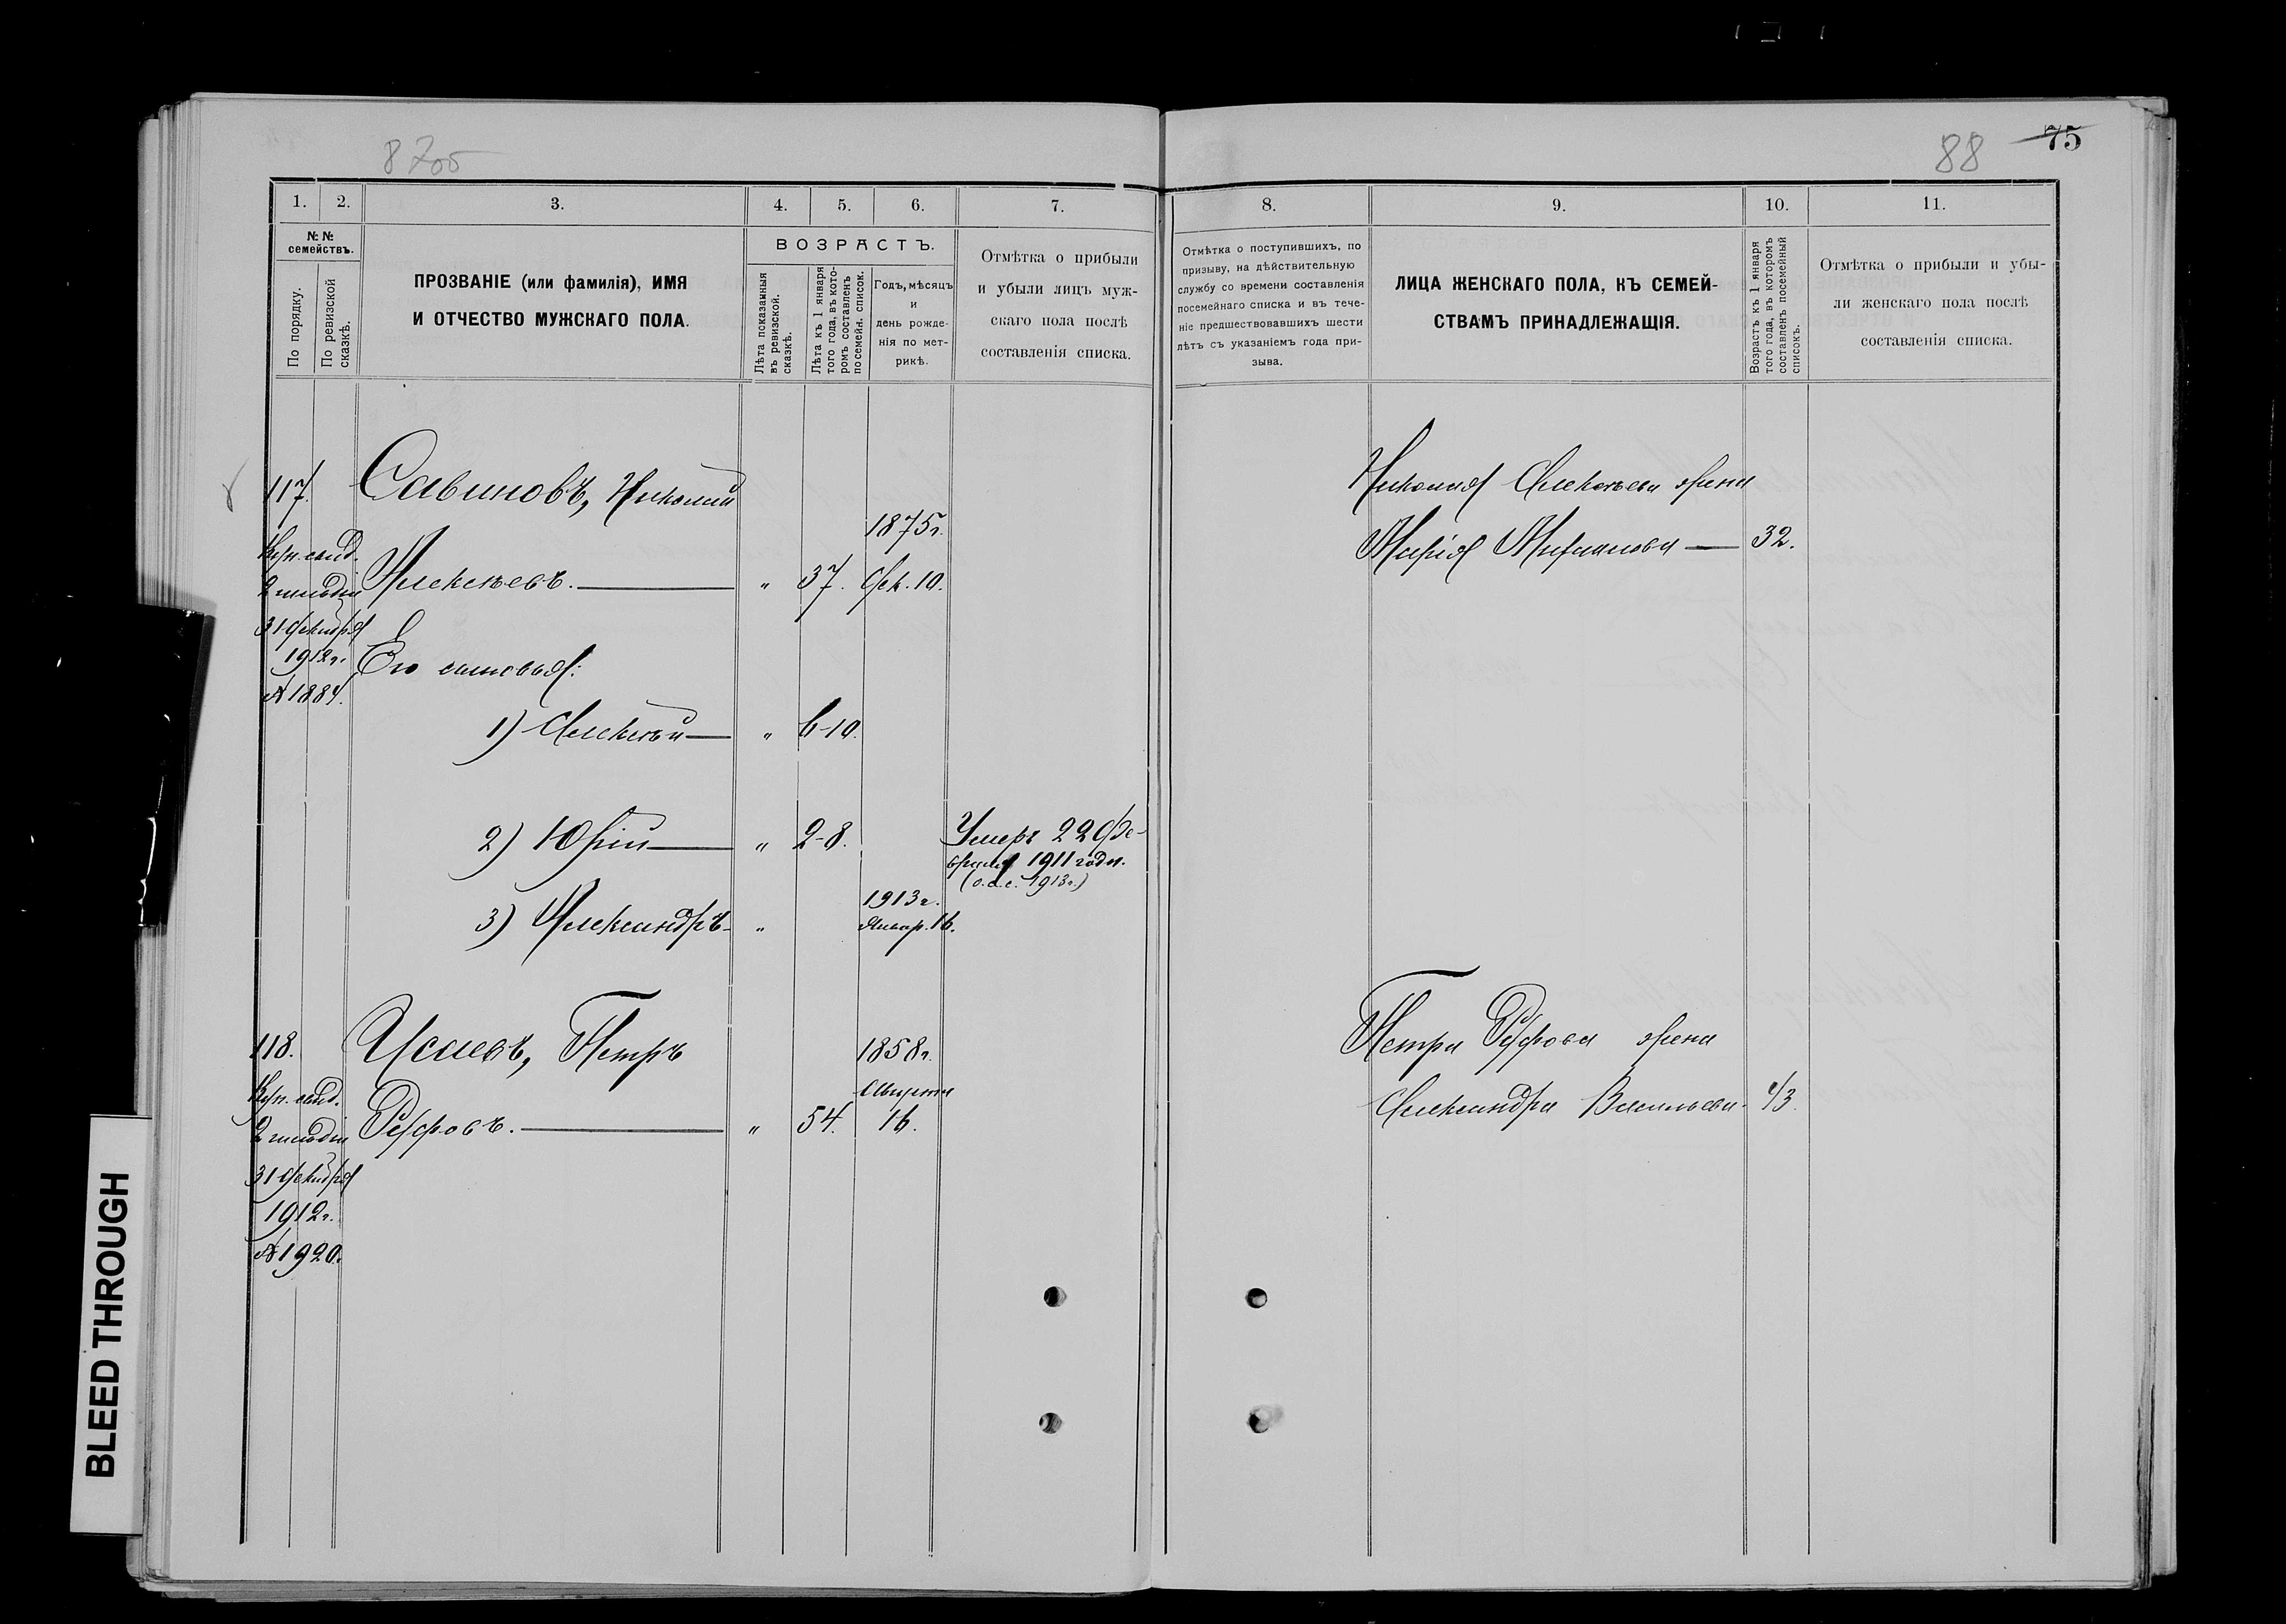 8705
88 75
1. 2. 3. 4. 5. 6. 7. 8. 9. 10. 11.
№ №
семействъ.
По порядку.
По ревизской
сказкѣ.
ПРОЗВАНІЕ (или фамилія), ИМЯ
И ОТЧЕСТВО МУЖСКАГО ПОЛА.
ВОЗРАСТЪ.
Лѣта показанныя
въ ревизской.
сказкѣ.
Лѣта къ 1 января
того года, въ кото-
ромъ составленъ
посемейн. список.
Годъ, мѣсяцъ
и
день рожде-
нія по мет-
рикѣ.
Отмѣтка о прибыли
и убыли лицъ муж-
скаго пола послѣ
составленія списка.
Отмѣтка о поступившихъ, по
призыву, на дѣйствительную
службу со времени составленія
посемейнаго списка и въ тече-
ніе предшествовавшихъ шести
лѣтъ съ указаніемъ года при-
зыва.
ЛИЦА ЖЕНСКАГО ПОЛА, КЪ СЕМЕЙ-
СТВАМЪ ПРИНАДЛЕЖАЩІЯ.
Возрастъ къ 1 января
того года, въ которомъ
составленъ посемейный
списокъ.
Отмѣтка о прибыли и убы-
ли женскаго пола послѣ
составленія списка.
117. Савиновъ, Николай
Куп. свид.
2 гильдіи
31 декабря
1912 г.
№ 1884.
Алексѣевъ. — " 37. 1875 г. Дек. 10.
Его сыновья:
1) Алексѣй — " 6-10.
2) Юрій — " 2-8. Умеръ 22 Фе-
враля 1911 года.
(о.с.с. 1913 г.)
3) Александръ - " 1913 г.
Январ. 16.
Николая Алексѣева жена
Марія — 32.
118. Исаевъ, Петръ
Куп. свид.
2 гильдіи
31 декабря
1912 г.
№ 1920.
" 54. 1858 г.
Августа
16.
Петра жена
Александра Васильева. 43.
BLEED THROUGH